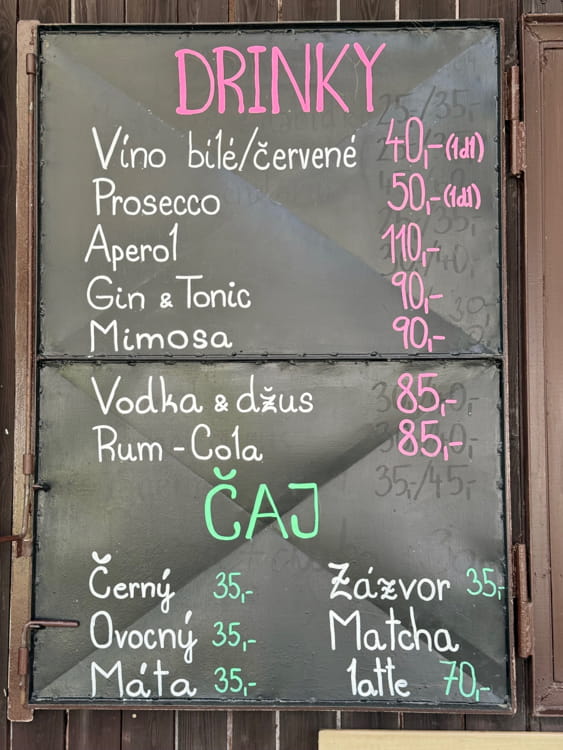 DRINKY
Víno bílé/červené 40,- (1dl)
Prosecco 50,- (1dl)
Aperol 110,-
Gin & Tonic 90,-
Mimosa 90,-
Vodka & džus 85,-
Rum - Cola 85,-
35,-/45,-
ČAJ
Černý 35,- Zázvor 35,-
Ovocný 35,- Matcha
Máta 35,- latte 70,-